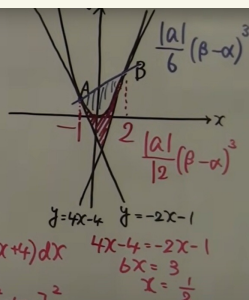 |a|/6 (β-α)³
A
B
-1
2
x
|a|/12 (β-α)³
y=4x-4
y=-2x-1
x+4)dx
4x-4=-2x-1
6x=3
x=1/2